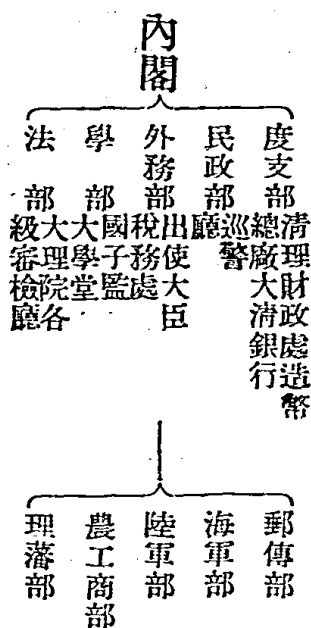 內閣
度支部
清理財政處造幣
總廠大清銀行
民政部
巡警
廳
外務部
出使大臣
稅務處
學部
國子監
大學堂
法部
大理院各
級審檢廳
郵傳部
海軍部
陸軍部
農工商部
理藩部